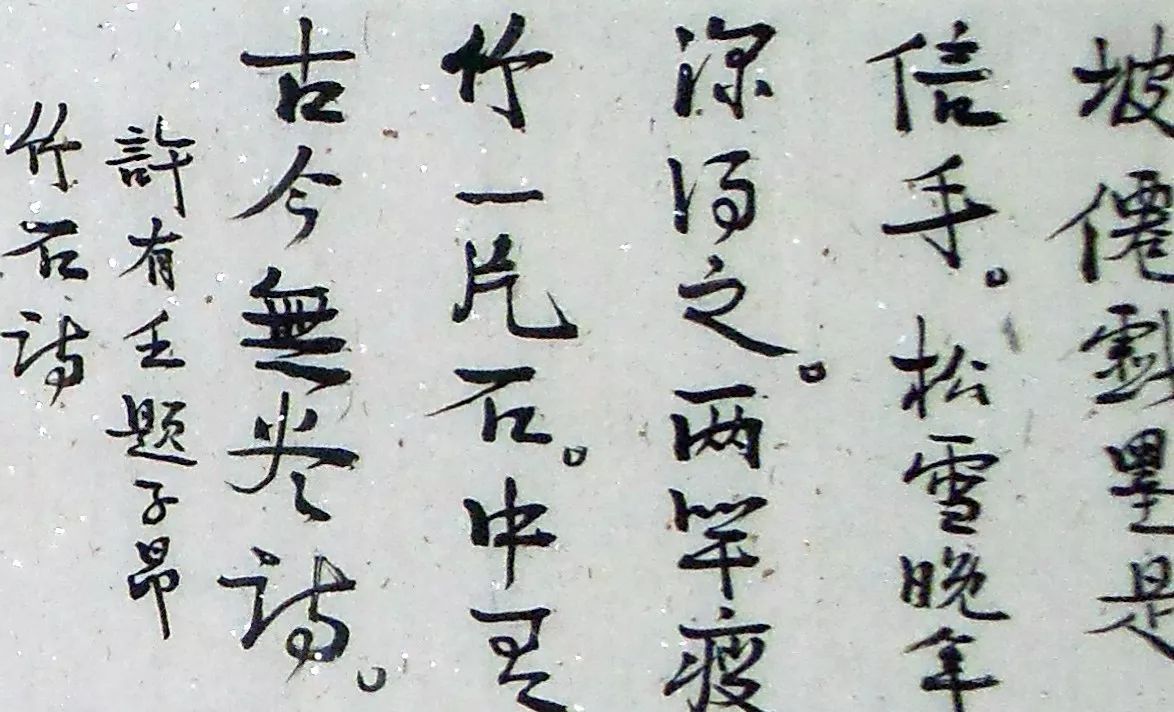 坡僊戲墨是
信手。松雪晚年
深得之。两竿瘦
竹一片石。中有
古今無尽詩。
許有壬題子昂
竹石詩